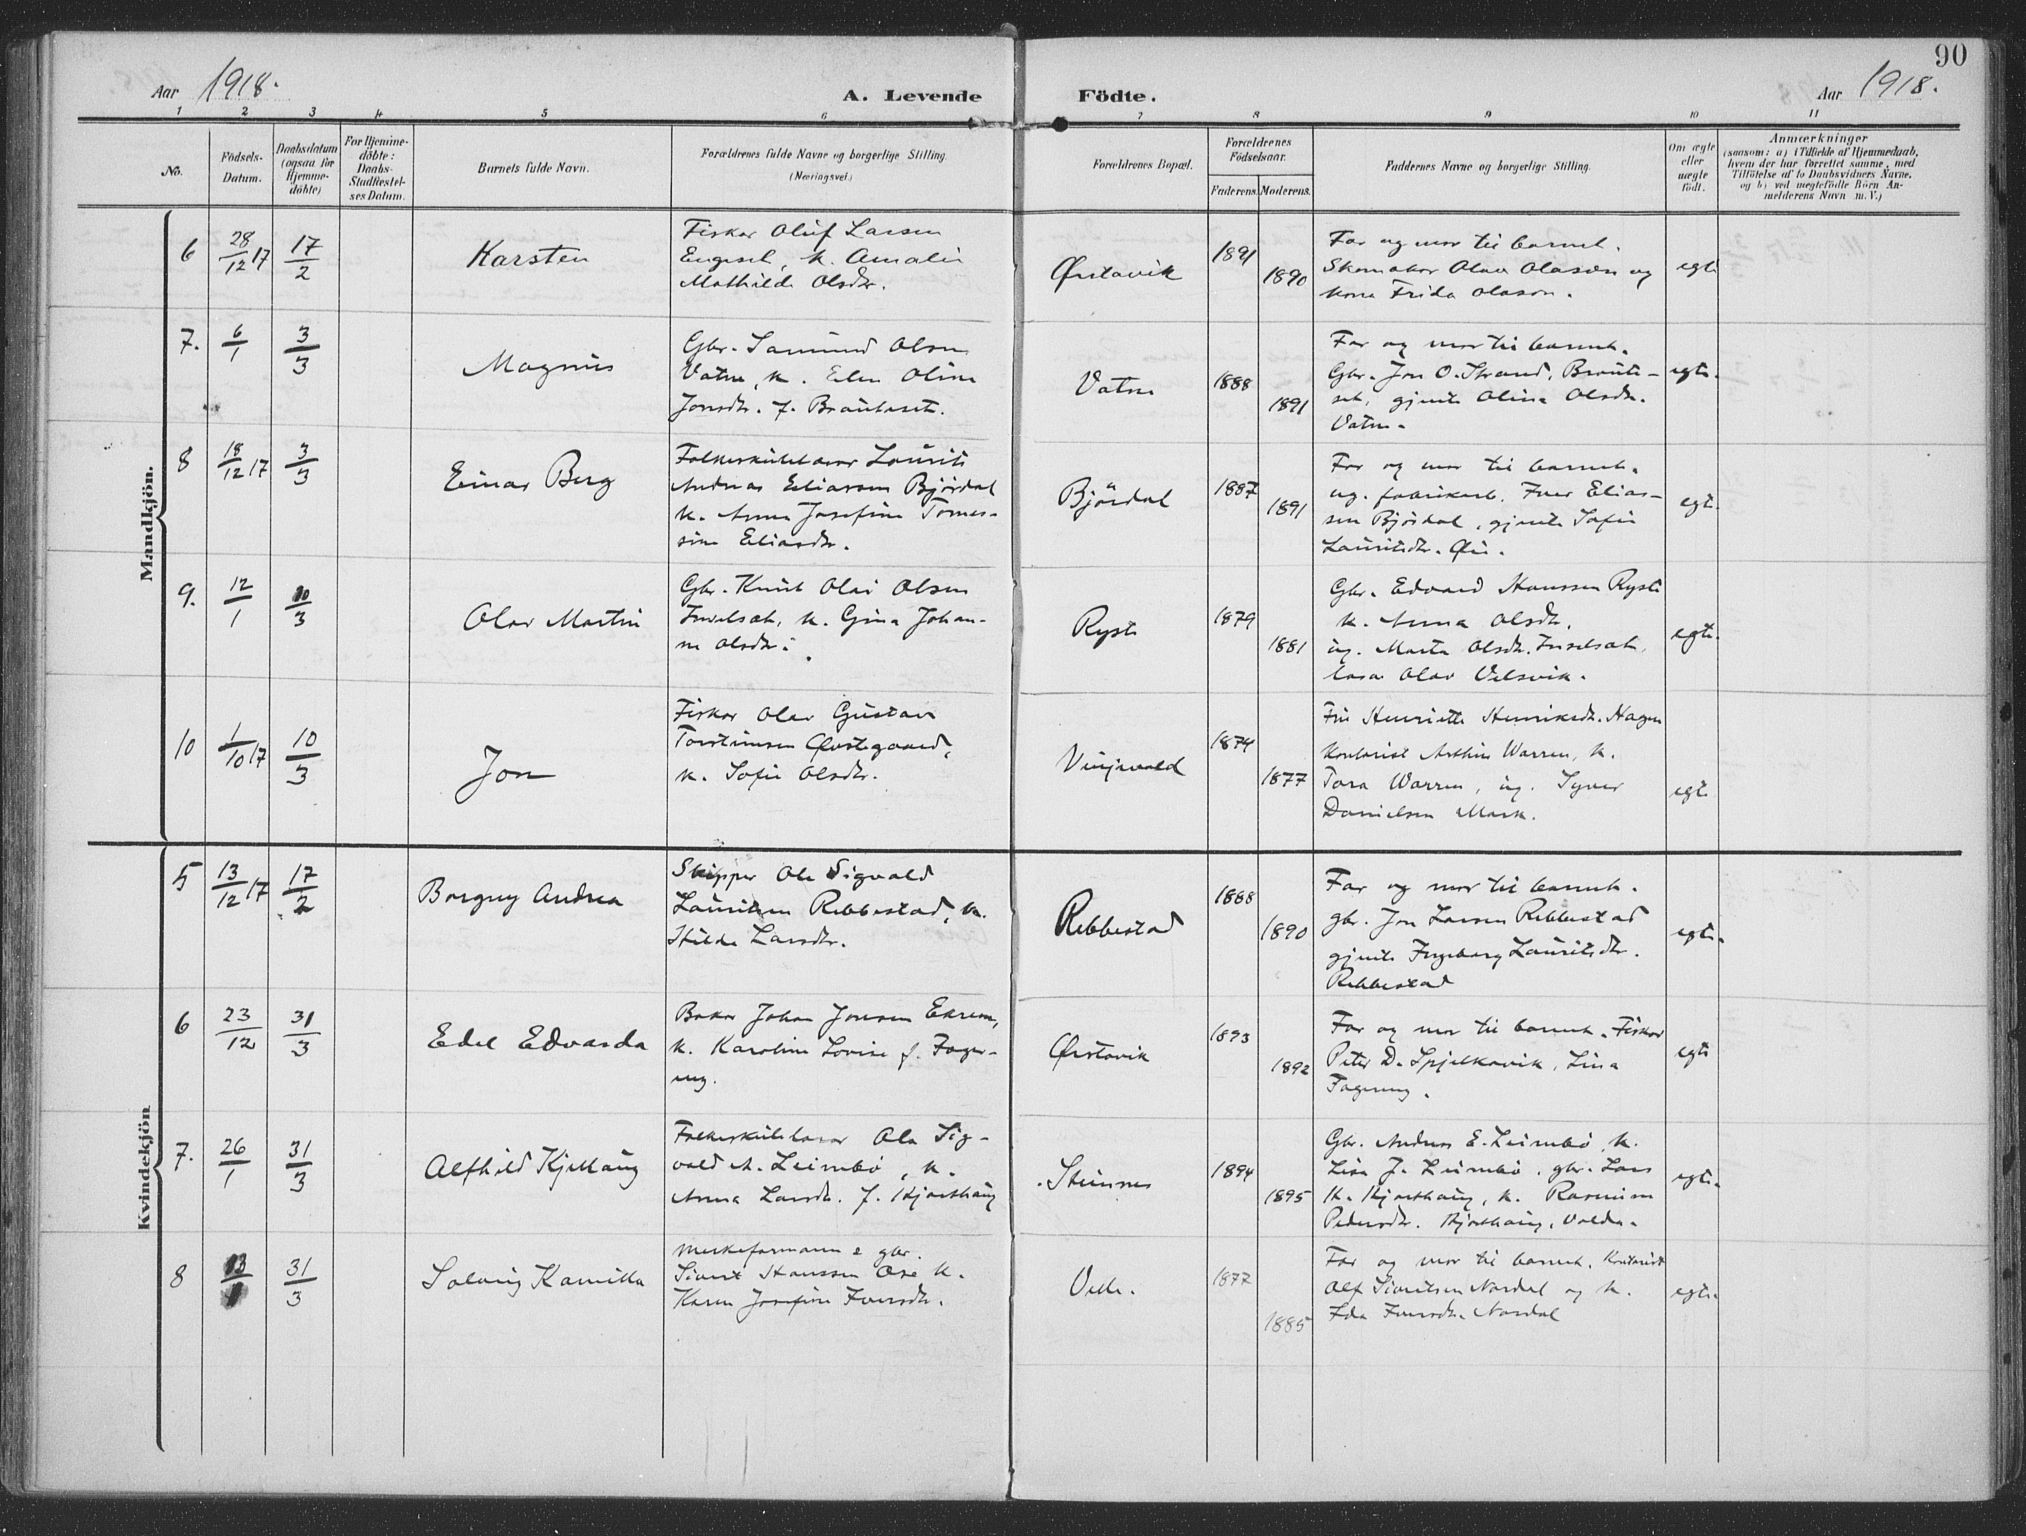 90
Aar 1918.
A. Levende Födte.
Aar 1918.
1 2 3 4 5 6 7 8 9 10 11
No.
Födsels-
Datum.
Daabsdatum
(ogsaa for
Hjemme-
döbte)
For Hjemme-
döbte:
Daabs-
Stadfæstel-
ses Datum.
Barnets fulde Navn.
Forældrenes fulde Navne og borgerlige Stilling.
(Næringsvei)
Forældrenes Bopæl.
Forældrenes
Födselsaar.
Faderens. Moderens.
Faddernes Navne og borgerlige Stilling.
Om ægte
eller
uægte
födt.
Anmærkninger
(saasom: a) i Tilfælde af Hjemmedaab,
hvem der har forrettet samme, med
Tilföielse af to Daabsvidners Navne,
og b) ved uægtefödte Börn An-
melderens Navn m. V.)
Mandkjön.
6 28/12 17 17/2 Karsten
Fisker Oluf Larsen
Engeset, k. Amalie
Mathilde Olsdr.
Ørstavik 1891 1890
Far og mor til barnet.
Skomaker Olav Olason og
kona Frida Olason.
egte
7. 6/1 3/3 Magnus
Gbr. Samund Olsen
Vatne, k. Elen Oline
Jonsdtr. f. Brautaset.
Vatne 1888 1891
Far og mor til barnet.
Gbr. Jon O. Strand, Braute-
set, gjente Olina Olsdr.
Vatne.
egte.
8 18/12 17 3/3 Einar Berg
Folkeskulelærar Laurits
Andreas Eliassen Björdal
k. Anna Josefine Tomas-
sine Eliasdtr.
Björdal 1887 1891
Far og mor til barnet.
ug. fabrikarb. Iver Elias-
sen Björdal, gjente Sofie
Lauritsdtr. Øie.
egte.
9. 12/1 10/3 Olav Martin
Gbr. Knut Olai Olsen
k. Gina Johan-
ne Olsdtr.
Ryste 1879 1881
Gbr. Edvard Hanssen Ryste
k. Anna Olsdtr.
ug. Marta Olsdtr.
Olav Velsvik.
egte.
10 1/10 17 10/3 Jon
Fisker Olav Gustav
Torsteinsen Øvstegaard,
k. Sofie Olsdtr.
Vinjevold 1874 1877
Fru Henriette Henriksdtr. Hagen
Kontorist Arthur Warren, k.
Tora Warren, ug. Syver
Danielsen Mork.
egte
Kvindekjön
5 13/12 17 17/2 Borgny Andrea
Skipper Ole Sigvald
Lauritsen Rebbestad, k.
Hilda Larsdtr.
Rebbestad 1888 1890
Far og mor til barnet.
gbr. Jon Larsen Rebbestad
gjente Ingeborg Lauritsdtr.
Rebbestad
egte.
6 23/12 31/3 Edel Edvarda
Baker Johan Jonsen Ekrem,
k. Karoline Lovise f. Fager-
eng.
Ørstavik 1893 1892
Far og mor til barnet. Fisker
Peter D. Spjelkavik, Lina
Fagereng.
egte
7. 26/1 31/3 Alfhild Kjellaug
Folkeskulelærar Ola Sig-
vald A. Leimbö, k.
Anna Larsdtr. f. Hjorthaug
Steinnes 1894 1895
Gbr. Andreas E. Leimbö, k.
Lisa J. Leimbö, gbr. Lars
K. Hjorthaug, k. Rasmine
Pedersdtr. Hjorthaug, Volda.
egte.
8 13/1 31/3 Solveig Kamilla
Meskeformann & gbr.
Sivert Hanssen Ose k.
Karen Josefine Iversdtr.
Velle. 1877 1885
Far og mor til barnet. Kontorist
Alf Sivertsen Nordal og k.
Ida Iversdtr. Nordal
egte.